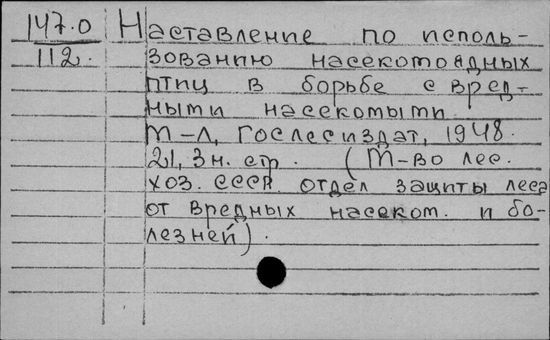 147.0 Наставление по исполь-
112. зованию насекомоядных
птиц в борьбе с вред-
ными насекомыми.
М-Л, Гослесиздат, 1948.
21, 3 н. стр. (М-во лес.
хоз. СССР. отдел защиты леса
от вредных насеком. и бо-
лезней).